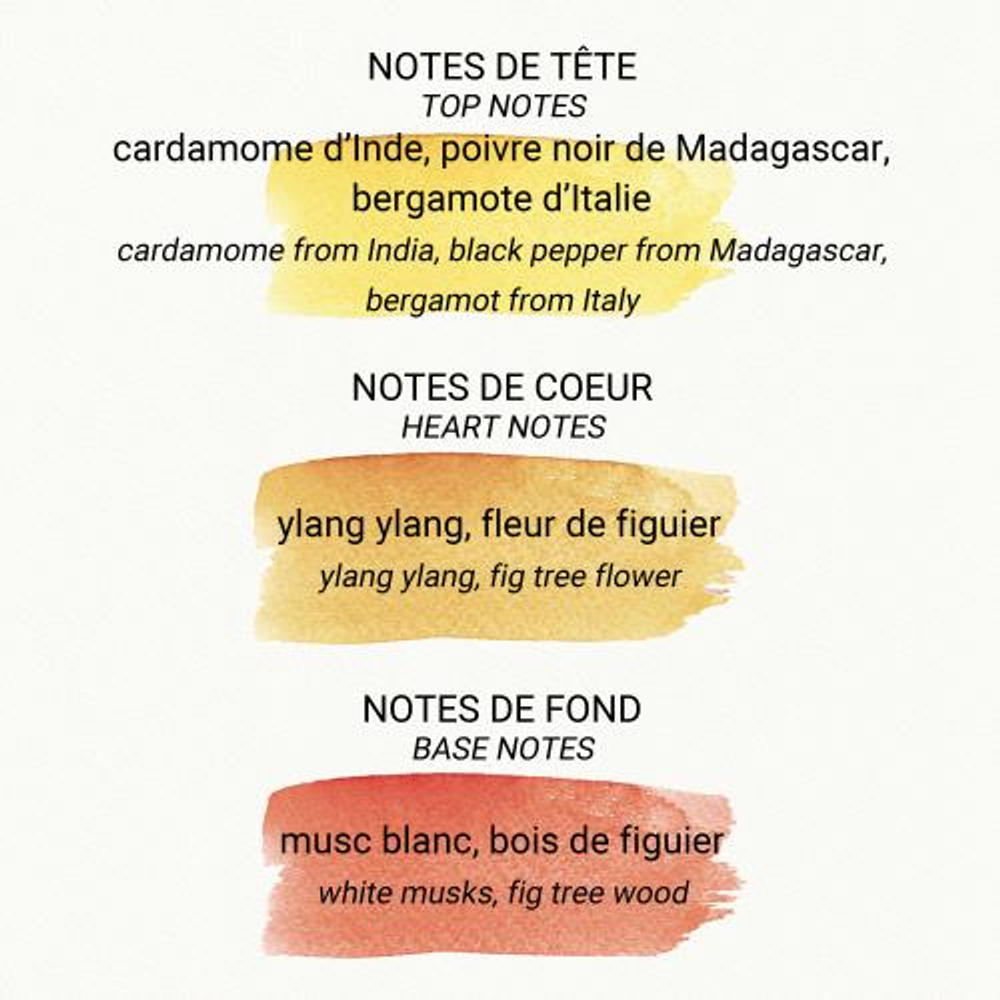 NOTES DE TÊTE
TOP NOTES
cardamome d’Inde, poivre noir de Madagascar,
bergamote d’Italie
cardamome from India, black pepper from Madagascar,
bergamot from Italy
NOTES DE COEUR
HEART NOTES
ylang ylang, fleur de figuier
ylang ylang, fig tree flower
NOTES DE FOND
BASE NOTES
musc blanc, bois de figuier
white musks, fig tree wood